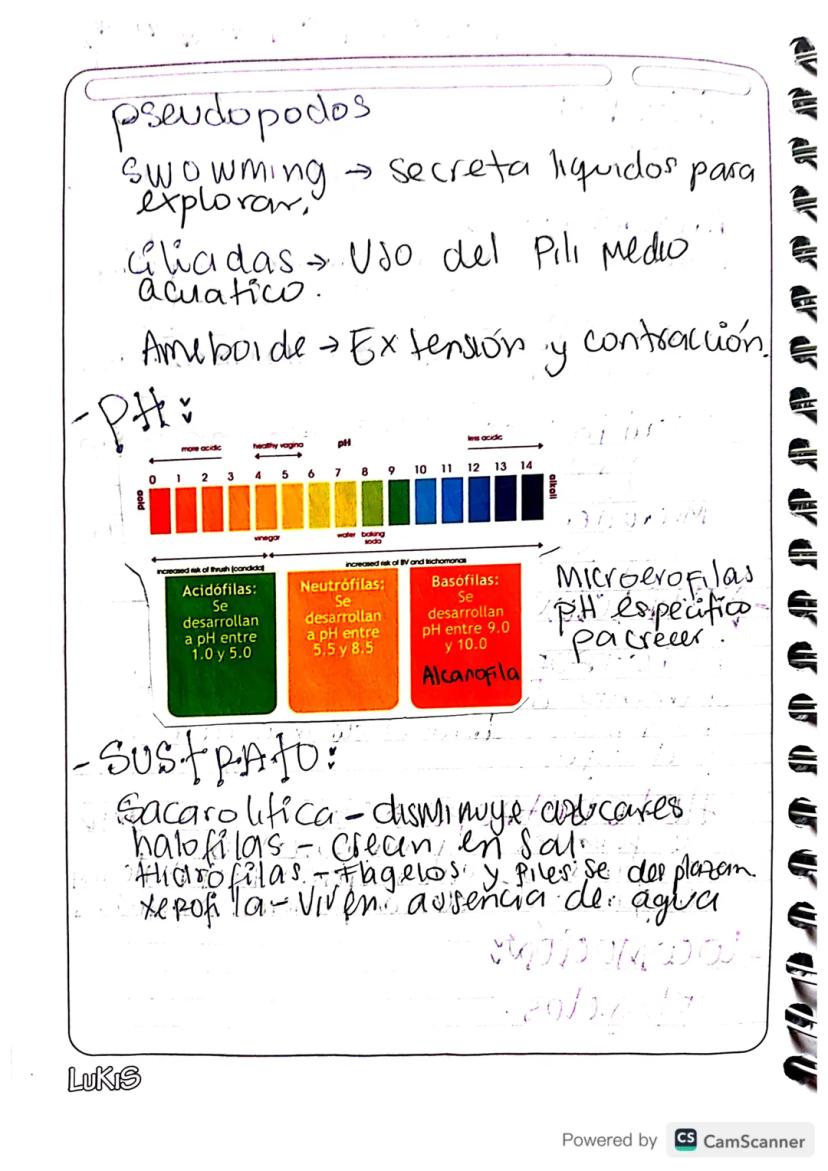 pseudopodos
swowming → secreta liquidos para
explorar.
Ciliadas → Uso del Pili Medio
acuatico.
Ameboide → Extensión y contracción.
- PH:
more acidic healthy vagina pH less acidic
0 1 2 3 4 5 6 7 8 9 10 11 12 13 14
acid alkali
vinegar water baking
soda
increased risk of thrush (candida) increased risk of BV and trichomonas
Acidófilas:
Se
desarrollan
a pH entre
1.0 y 5.0
Neutrófilas:
Se
desarrollan
a pH entre
5.5 y 8.5
Basófilas:
Se
desarrollan
pH entre 9.0
y 10.0
Alcanofila
Microerofilas
pH especifico
pa crecer.
- SUStRAtO:
Sacarolitica - disminuye azucares
halofilas - crecen en Sal.
Hidrofilas - Flagelos y Piles se desplazan.
Xerofila - Viven ausencia de agua
LuKiS
Powered by CS CamScanner